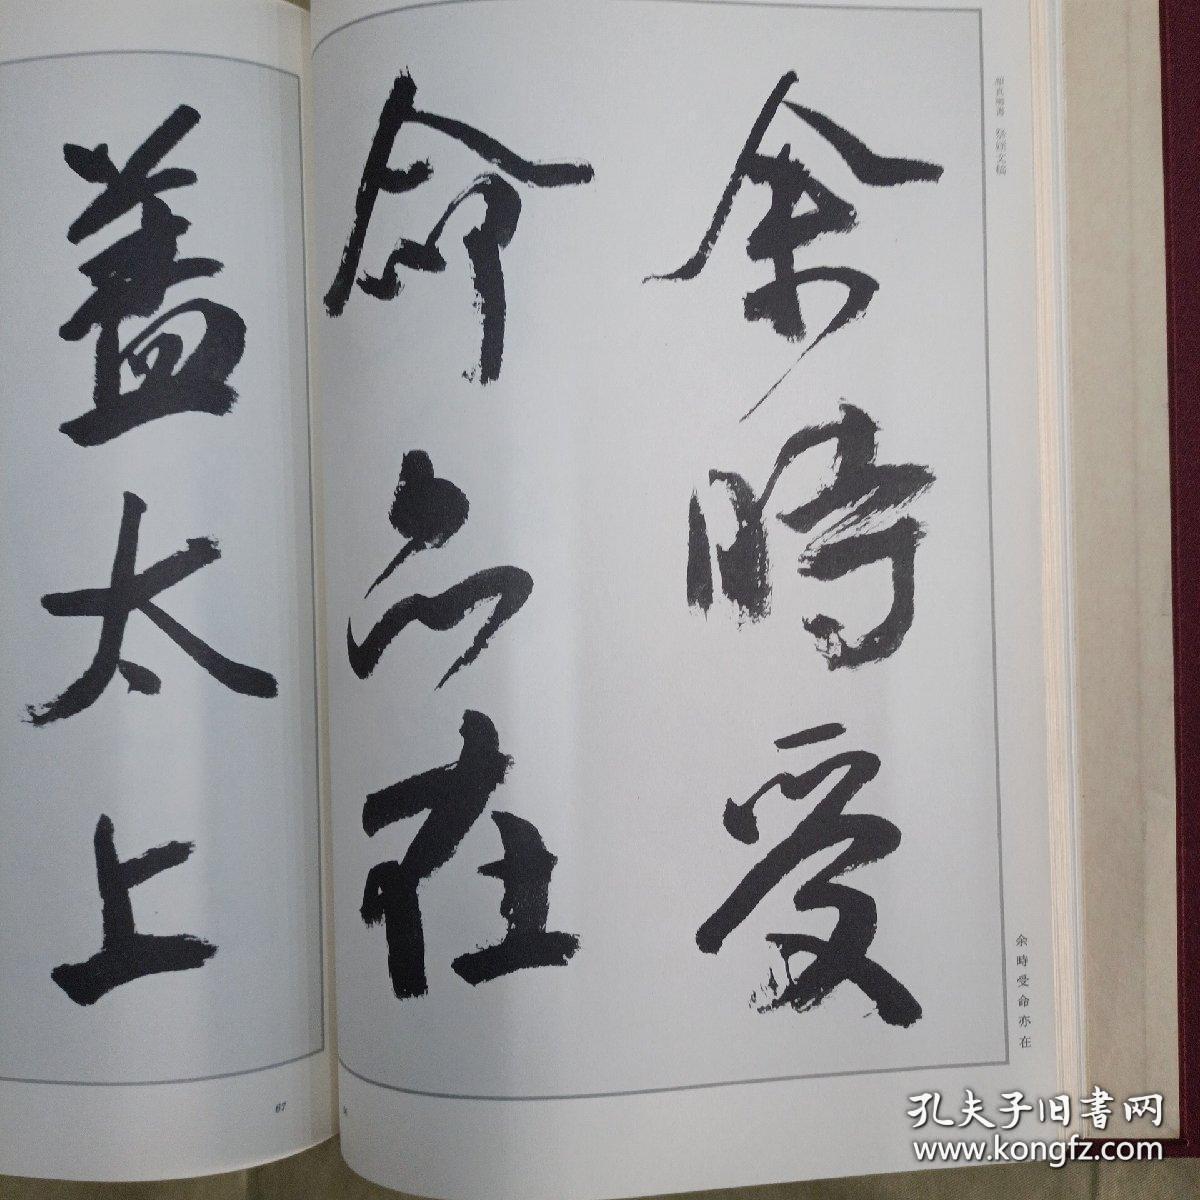 顔真卿書 祭姪文稿
余時受
命亦在
余時受命亦在
蓋太上
67
孔夫子旧書网
www.kongfz.com